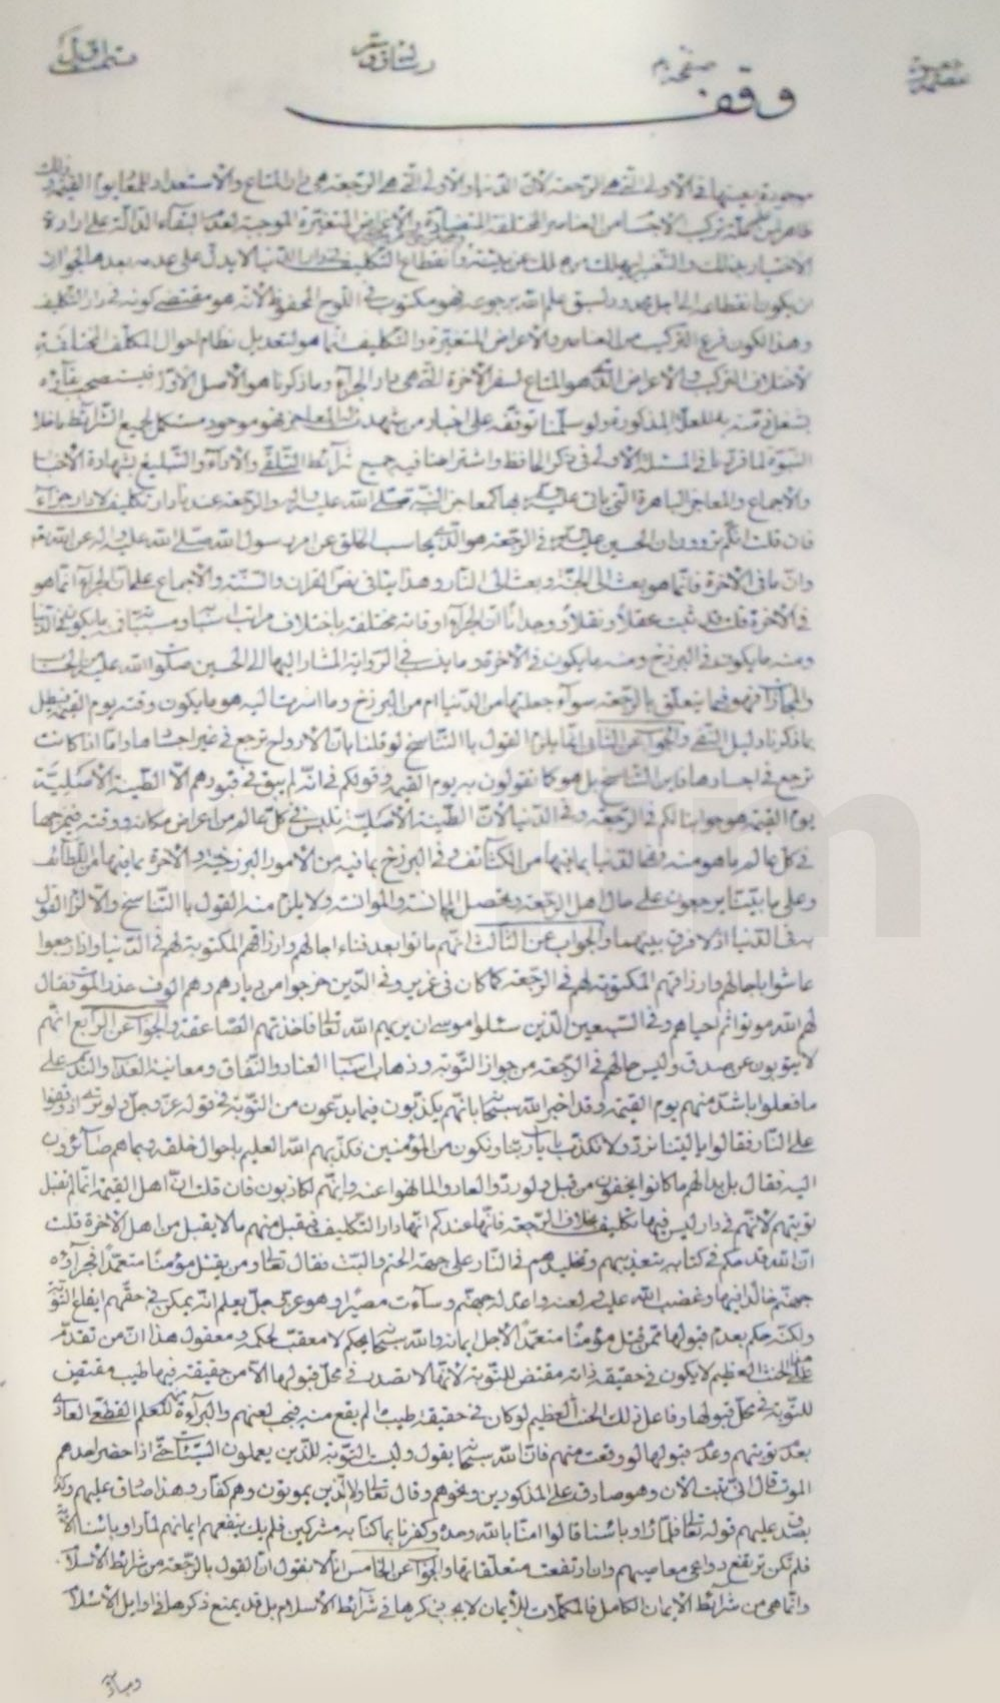 وقف
موجودة بعينها في الاولى التي هي الرجعة لان الدنيا والاولى التي هي الرجعة هي دار المتاع والاستعداد للمعاد يوم القيمة وذلك
ظاهر لمن تركيب الاجسام من العناصر المختلفة المتضادة والاعراض المتغيرة الموجبة لعدم البقاء الدالة على ارادة
الاختبار بذلك والتغيير ليهلك من هلك عن بينة وانقطاع التكليف في دار الدنيا لا يدل على عدمه بعدها لجواز
ان يكون انقطاعه الى اجل معدود لسبق علم الله برجوعه فهو مكتوب في اللوح المحفوظ لانه هو مقتضى كونه في دار التكليف
وهذا الكون فرع التركيب من العناصر والاعراض المتغيرة والتكليف انما هو لتعديل نظام احوال المكلف المختلفة
لاختلاف التركيب والاعراض الذي هو المتاع لسفر الاخرة التي هي دار الجزاء وما ذكرنا هو الاصل الاول فيستصحب بقاؤه
المذكورة ولو سلمنا توقفه على اخبار من شهدت له المعاجز فهو موجود مستكمل لجميع الشرائط ما خلا
النبوة لما قررنا في المسئلة الاولى في ذكر الحافظ واشتراطنا فيه جميع شرائط التلقي والاداء والتبليغ بشهادة الاخبار
والاجماع والمعاجز الباهرة التي ياتي بها كمعاجز النبي صلى الله عليه واله والرجعة عندنا دار تكليف لا دار جزاء
فان قلت انكم تروون ان الحسين عليه السلم في الرجعة هو الذي يحاسب الخلق عن امر رسول الله صلى الله عليه واله عن الله
وان ما في الاخرة فانما هو بعث الى الجنة وبعث الى النار وهذا ينافي نص القران والسنة والاجماع على ان الجزاء انما هو
في الاخرة قلت قد ثبت عقلا ونقلا ووجدانا ان الجزاء اوقاته مختلفة باختلاف مراتب اسبابه ومسبباته فمنه ما يكون في الدنيا
ومنه ما يكون في البرزخ ومنه ما يكون في الاخرة وما ينسب في الرواية المشار اليها الى الحسين صلوات الله عليه من الحساب
والمجازاة فهو فيما يتعلق بالرجعة سواء جعلتها من الدنيا ام من البرزخ وما اشرت اليه هو ما يكون وقته يوم القيمة فبطل
بما ذكرنا دليل النفي والجواب عن الثاني انما يلزم القول بالتناسخ لو قلنا بان الارواح ترجع في غير اجسادها واما اذا كانت
ترجع في اجسادها فاين التناسخ بل هو كما تقولون به يوم القيمة وقولكم في انه لم يبق في قبورهم الا الطينة الاصلية
يوم القيمة هو جوابنا لكم في الرجعة وفي الدنيا لان الطينة الاصلية تلبس في كل عالم من اعراض مكانه ووقته
في كل عالم ما هو منه ففي الدنيا بما فيها من الكثائف وفي البرزخ بما فيه من الامور البرزخية والاخرة بما فيها من اللطائف
وعلى ما بينا يرجعون على حال اهل الرجعة وتحصل المجانسة والموانسة ولا يلزم منه القول بالتناسخ والا لزم القول
به في الدنيا اذ لا فرق بينهما والجواب عن الثالث انهم ماتوا بعد فناء اجالهم وارزاقهم المكتوبة لهم في الدنيا واذا رجعوا
عاشوا باجالهم وارزاقهم المكتوبة لهم في الرجعة كما كان في عزير وفي الذين خرجوا من ديارهم وهم الوف حذر الموت فقال
لهم الله موتوا ثم احياهم وفي السبعين الذين سئلوا موسى ان يريهم الله تعالى فاخذتهم الصاعقة والجواب عن الرابع انهم
لا يتوبون عن صدق وليس حالهم في الرجعة من جواز التوبة وذهاب اسباب العناد والنفاق ومعاينة العذاب والندم على
ما فعلوا باشد منهم يوم القيمة وقد اخبر الله سبحانه بانهم يكذبون فيما يدعون من التوبة في قوله عز وجل ولو ترى اذ وقفوا
على النار فقالوا يا ليتنا نرد ولا نكذب بايات ربنا ونكون من المؤمنين فكذبهم الله العليم باحوال خلقه وبما هم صائرون
اليه فقال بل بدا لهم ما كانوا يخفون من قبل ولو ردوا لعادوا لما نهوا عنه وانهم لكاذبون فان قلت ان اهل القيمة انما لم تقبل
توبتهم لانهم في دار ليس فيها تكليف بخلاف الرجعة فانها عندكم انها دار التكليف فيقبل منهم ما لا يقبل من اهل الاخرة قلت
ان الله قد حكم في كتابه بتعذيبهم وتخليدهم في النار على جهة الحتم والبت فقال تعالى ومن يقتل مؤمنا متعمدا فجزاؤه
جهنم خالدا فيها وغضب الله عليه ولعنه واعد له جهنم وساءت مصيرا وهو عز وجل يعلم انه يمكن في حقهم ايقاع التوبة
ولكنه حكم بعدم قبولها ممن قتل مؤمنا متعمدا لاجل ايمانه والله سبحانه يحكم لا معقب لحكمه ومعقول هذا ان من تقدم
على الحنث العظيم لا يكون في حقيقة ذاته مقتض للتوبة لانها لا تصدر في محل قبولها الا من حقيقة فيها طيب مقتض
للتوبة في محل قبولها وفاعل ذلك الحنث العظيم لو كان في حقيقته طيب لم يقع منه فيجب لعنهم والبراءة منهم للعلم القطعي العادي
بعدم توبتهم وعدم قبولها لو وقعت منهم فان الله سبحانه يقول وليست التوبة للذين يعملون السيئات حتى اذا حضر احدهم
الموت قال اني تبت الان وهو صادق على المذكورين ونحوهم وقال تعالى ولا الذين يموتون وهم كفار وهذا صادق عليهم وكذا
يصدق عليهم قوله تعالى فلما راوا باسنا قالوا امنا بالله وحده وكفرنا بما كنا به مشركين فلم يك ينفعهم ايمانهم لما راوا باسنا الاية
فلم تكن ترتفع دواعي معاصيهم وان ارتفعت متعلقاتها والجواب عن الخامس انا لا نقول ان القول بالرجعة من شرائط الاسلام
وانما هي من شرائط الايمان الكامل فالمكملات للايمان لا يجب ذكرها في شرائط الاسلام بل قد يمنع ذكرها في اوايل الاسلام